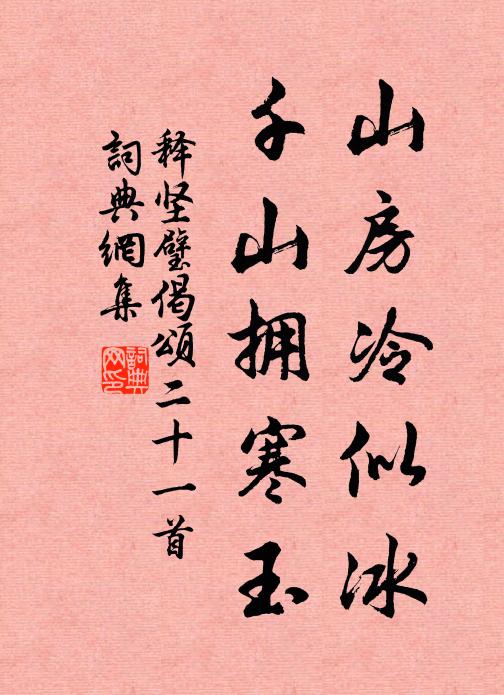 山房冷似冰
千山拥寒玉
释坚璧偈頌二十一首
詞典網集
詞典网印